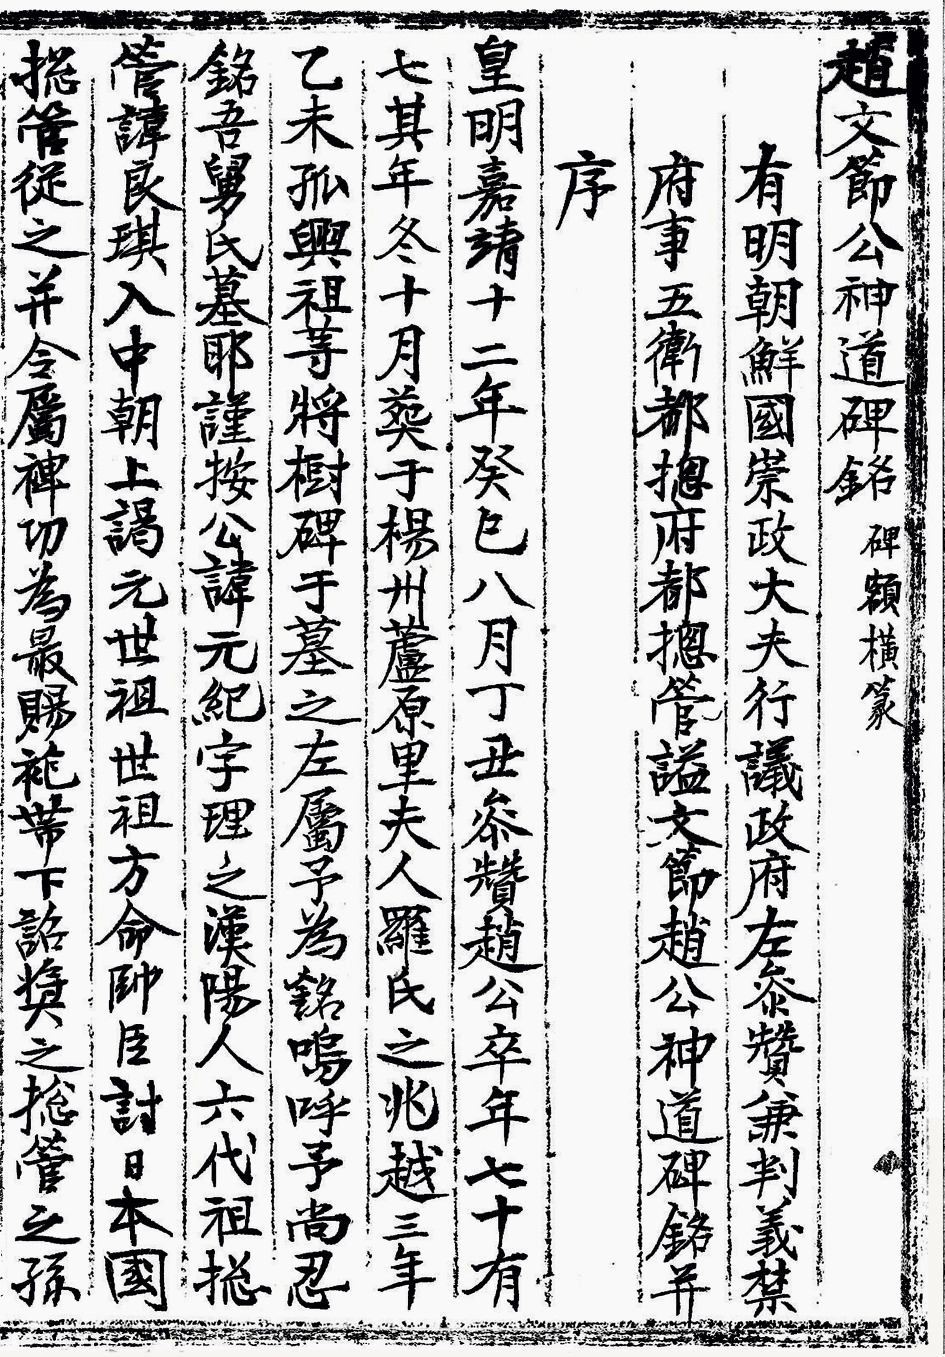 趙文節公神道碑銘 碑額橫篆
有明朝鮮國崇政大夫行議政府左叅贊兼判義禁
府事五衛都摠府都摠管謚文節趙公神道碑銘并
序
皇明嘉靖十二年癸巳八月丁丑叅贊趙公卒年七十有
七其年冬十月葬于楊州蘆原里夫人羅氏之兆越三年
乙未孤興祖等將樹碑于墓之左屬予為銘嗚呼予尚忍
銘吾舅氏墓耶謹按公諱元紀字理之漢陽人六代祖摠
管諱良琪入中朝上謁元世祖世祖方命帥臣討日本國
摠管從之并令屬裨切為最賜袍帶下詔奬之摠管之孫